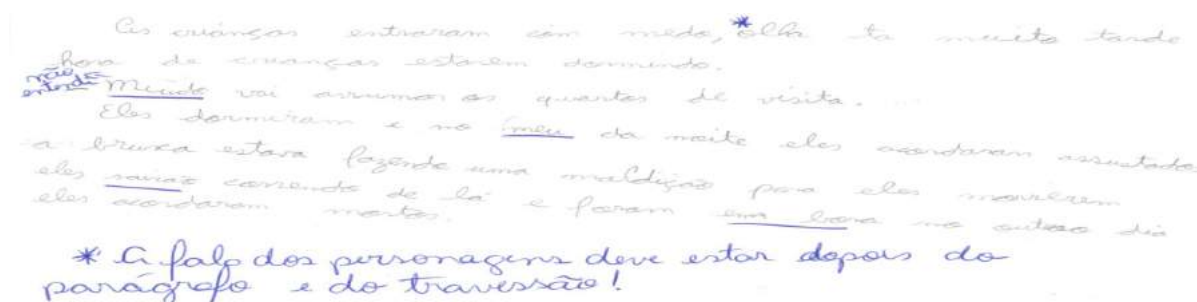 As crianças entraram com medo, *olha ta muito tarde
hora de crianças estarem dormindo.
não entendi Miudo vai arrumar os quartos de visita.
Eles dormiram e no meu da noite eles acordaram assustados
a bruxa estava fazendo uma maldição para eles morrerem
eles saírão correndo de lá e foram em bora no outro dia
eles acordaram mortos.
* A fala dos personagens deve estar depois do
parágrafo e do travessão!